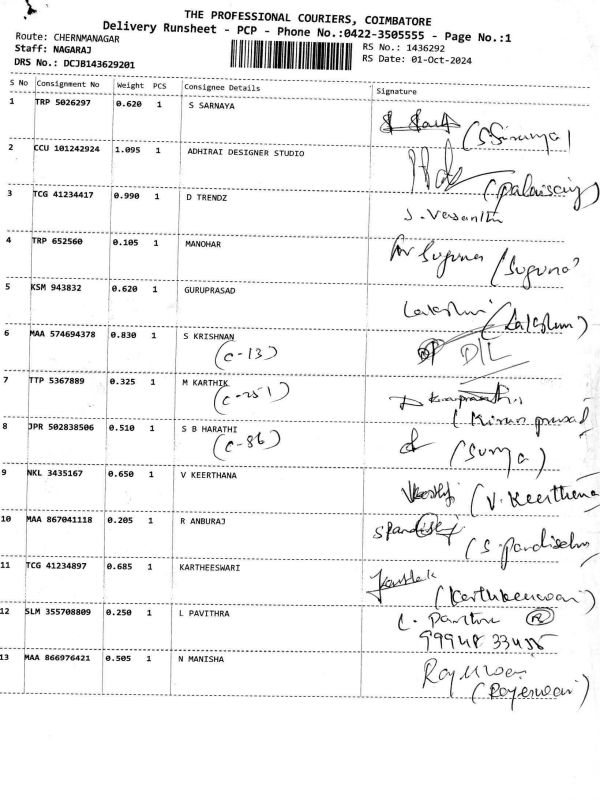 THE PROFESSIONAL COURIERS, COIMBATORE
Delivery Runsheet - PCP - Phone No.:0422-3505555 - Page No.:1
Route: CHERNMANAGAR RS No.: 1436292
Staff: NAGARAJ RS Date: 01-Oct-2024
DRS No.: DCJB143629201
S No Consignment No Weight PCS Consignee Details Signature
1 TRP 5026297 0.620 1 S SARNAYA
2 CCU 101242924 1.095 1 ADHIRAI DESIGNER STUDIO
3 TCG 41234417 0.990 1 D TRENDZ J. Vasanth
4 TRP 652560 0.105 1 MANOHAR for Suguna (Suguna)
5 KSM 943832 0.620 1 GURUPRASAD Lakshmi (Lakshmi)
6 MAA 574694378 0.830 1 S KRISHNAN D/L
(C-13)
7 TTP 5367889 0.325 1 M KARTHIK
(C-251) (Kirun prasad
8 JPR 502838506 0.510 1 S B HARATHI
(C-86) (Surya)
9 NKL 3435167 0.650 1 V KEERTHANA (V. Keerthana
10 MAA 867041118 0.205 1 R ANBURAJ
(S. pandiselvi
11 TCG 41234897 0.685 1 KARTHEESWARI
12 SLM 355708809 0.250 1 L PAVITHRA
13 MAA 866976421 0.505 1 N MANISHA